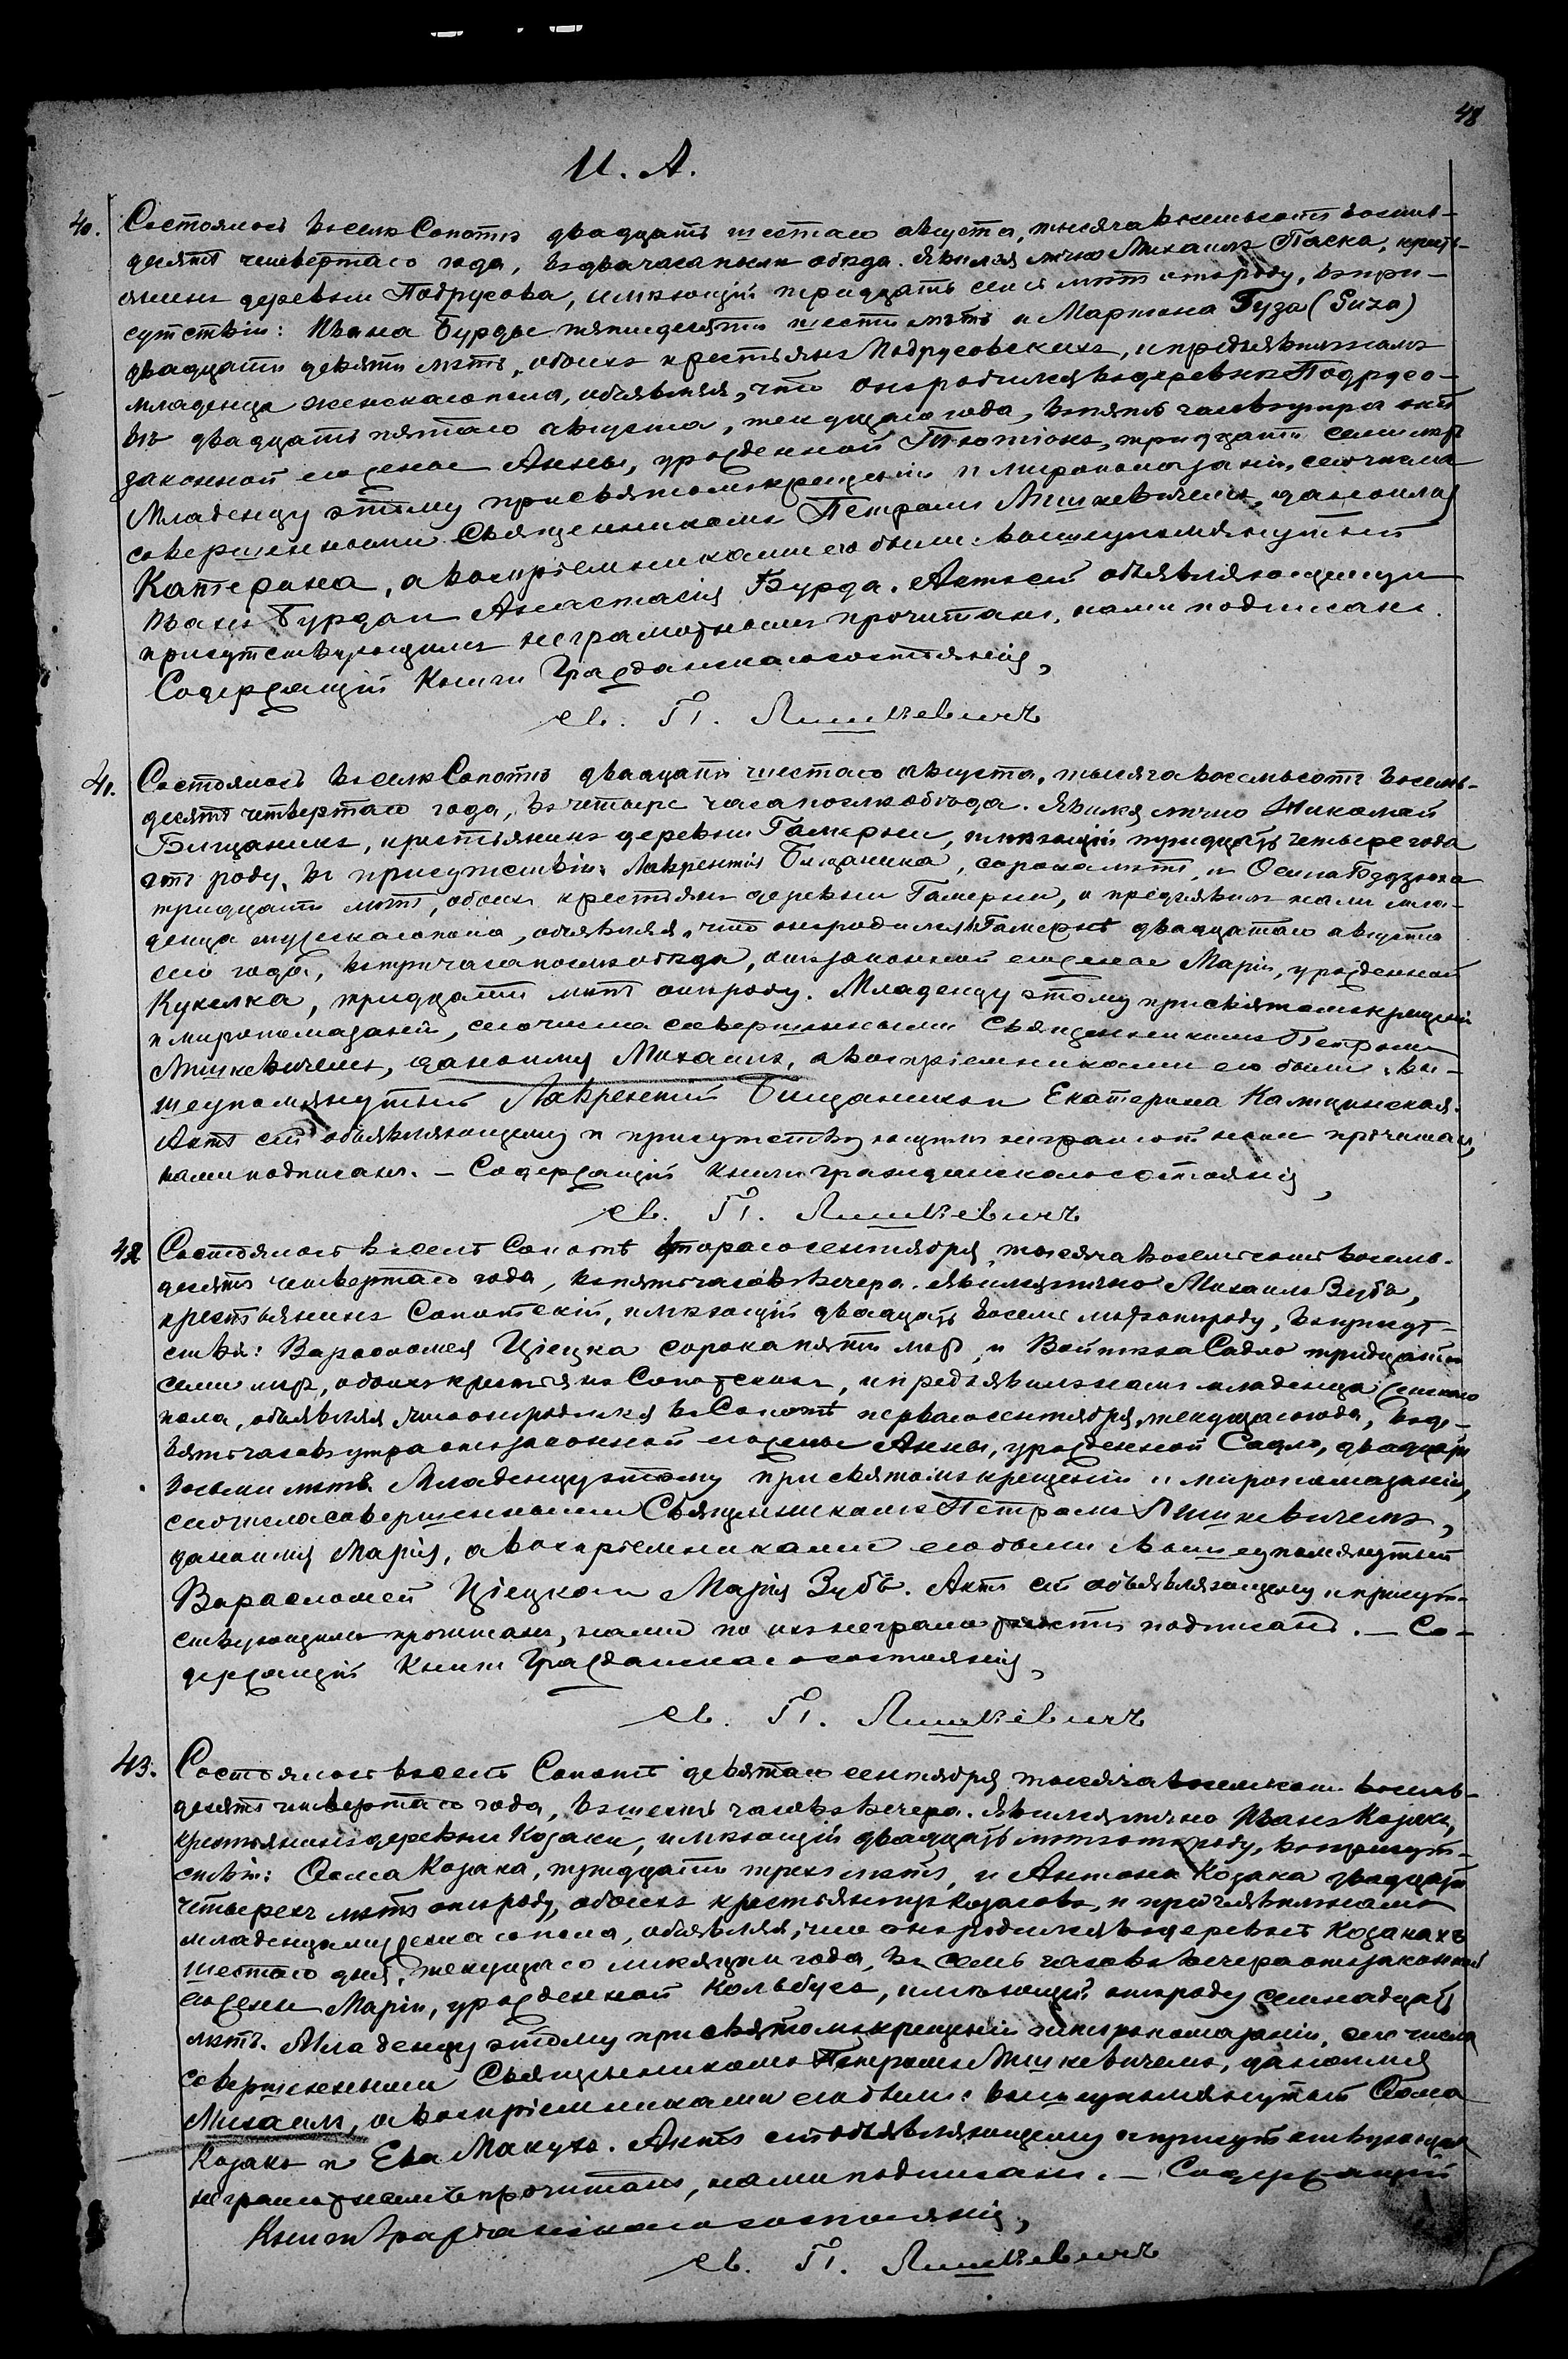 48
И. А.
40. Состоялось въ селѣ Сопотѣ двадцать шестаго августа, тысяча восемьсотъ восемь-
десятъ четвертаго года, въ два часа послѣ обѣда. Явился лично Михаилъ Паска, кресть-
янинъ деревни Подрусова, имѣющій тридцать семь лѣтъ отъ роду, въ при-
сутствіи: Ивана Бурды пятидесяти шести лѣтъ и Мартина Гуза (Guza)
двадцати девяти лѣтъ, обоихъ крестьянъ Подрусовскихъ, и предъявилъ намъ
младенца женскаго пола, объявляя, что онъ родился въ деревнѣ Подрусо-
вѣ двадцать пятаго августа, текущаго года, въ пять часовъ утра отъ
законной его жены Анны, урожденной тридцати семи лѣтъ
Младенцу этому при святомъ крещеніи и миропомазаніи, сего числа
совершенными Священникомъ Петромъ Лишкевичемъ, дано имя
Катерина, а воспріемниками его были: вышеупомянутый
Иванъ Бурда и Анастасія Бурда. Актъ сей объявляющему и
присутствующимъ неграмотнымъ прочитанъ, нами подписанъ.
Содержащій Книги Гражданскаго состоянія,
св. П. Лишкевичъ
41. Состоялось въ селѣ Сопотѣ двадцать шестаго августа, тысяча восемьсотъ восемь-
десятъ четвертаго года, въ четыре часа послѣ обѣда. Явился лично Николай
Бищаникъ, крестьянинъ деревни Гамерни, имѣющій тридцать четыре года
отъ роду, въ присутствіи: Лаврентія Бищаника, сорока лѣтъ, и Осипа
тридцати лѣтъ, обоихъ крестьянъ деревни Гамерни, и предъявилъ намъ мла-
денца мужескаго пола, объявляя, что онъ родился въ Гамернѣ двадцатаго августа
сего года, въ три часа послѣ обѣда, отъ законной его жены Маріи, урожденной
Кукелка, тридцати лѣтъ отъ роду. Младенцу этому при святомъ крещеніи
и миропомазаніи, сего числа совершенными Священникомъ Петромъ
Лишкевичемъ, дано имя Михаилъ, а воспріемниками его были: вы-
шеупомянутый Лаврентій Бищаникъ и Екатерина
Актъ сей объявляющему и присутствующимъ неграмотнымъ прочитанъ,
нами подписанъ. — Содержащій книги гражданскаго состоянія,
св. П. Лишкевичъ
42 Состоялось въ селѣ Сопотѣ втораго сентября, тысяча восемьсотъ восемь-
десятъ четвертаго года, въ пять часовъ вечера. Явился лично Михаилъ Зубъ,
крестьянинъ Сопотскій, имѣющій двадцать восемь лѣтъ отъ роду, въ присут-
ствіи: Варѳоломея Ціецка сорока пяти лѣтъ, и Войтѣха Садло тридцати
семи лѣтъ, обоихъ крестьянъ Сопотскихъ, и предъявилъ намъ младенца женскаго
пола, объявляя, что онъ родился въ Сопотѣ перваго сентября, текущаго года, въ де-
вять часовъ утра отъ законной его жены Анны, урожденной Садло, двадцати
восьми лѣтъ. Младенцу этому при святомъ крещеніи и миропомазаніи,
сего числа совершенными Священникомъ Петромъ Лишкевичемъ,
дано имя Марія, а воспріемниками его были: вышеупомянутый
Варѳоломей Ціецко и Марія Зубъ. Актъ сей объявляющему и присут-
ствующимъ прочитанъ, нами по ихъ неграмотности подписанъ. — Со-
держащій Книги Гражданскаго состоянія,
св. П. Лишкевичъ
43. Состоялось въ селѣ Сопотѣ девятаго сентября, тысяча восемьсотъ восемь-
десятъ четвертаго года, въ шесть часовъ вечера. Явился лично Иванъ Козакъ,
крестьянинъ деревни Козаки, имѣющій двадцать лѣтъ отъ роду, въ присут-
ствіи: Ѳомы Козака, тридцати трехъ лѣтъ, и Антона Козака двадцати
четырехъ лѣтъ отъ роду, обоихъ крестьянъ изъ Козаковъ, и предъявилъ намъ
младенца мужескаго пола, объявляя, что онъ родился въ деревнѣ Козакахъ
шестаго дня, текущаго мѣсяца и года, въ семь часовъ вечера отъ законной
его жены Маріи, урожденной Кольбусъ, имѣющей отъ роду семнадцать
лѣтъ. Младенцу этому при святомъ крещеніи и миропомазаніи, сего числа
совершенными Священникомъ Петромъ Лишкевичемъ, дано имя
Михаилъ, а воспріемниками его были: вышеупомянутый Ѳома
Козакъ и Ева Макухо. Актъ сей объявляющему и присутствующимъ
неграмотнымъ прочитанъ, нами подписанъ. — Содержащій
Книги Гражданскаго состоянія,
св. П. Лишкевичъ